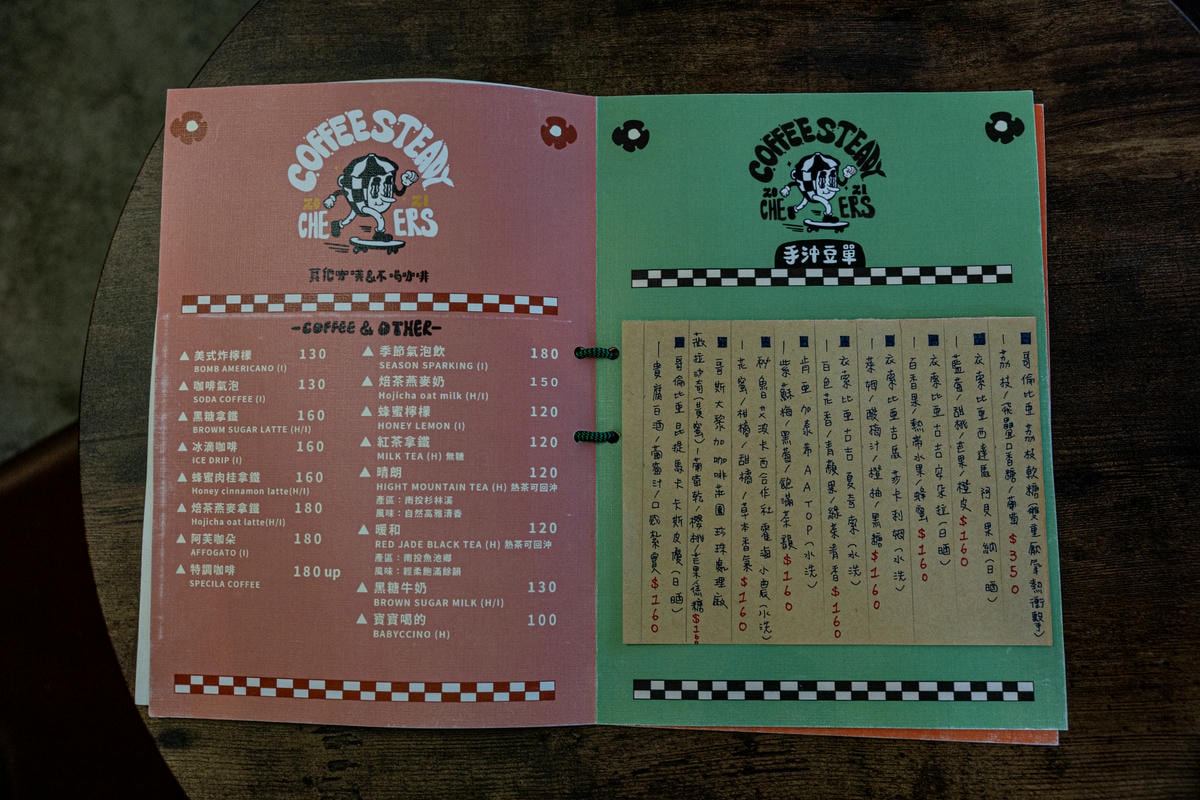 COFFEE STEADY
20 21
CHEERS
其他咖啡&不喝咖啡
-COFFEE & OTHER-
▲ 美式炸檸檬 130
BOMB AMERICANO (I)
▲ 咖啡氣泡 130
SODA COFFEE (I)
▲ 黑糖拿鐵 160
BROWM SUGAR LATTE (H/I)
▲ 冰滴咖啡 160
ICE DRIP (I)
▲ 蜂蜜肉桂拿鐵 160
Honey cinnamon latte(H/I)
▲ 焙茶燕麥拿鐵 180
Hojicha oat latte(H/I)
▲ 阿芙咖朵 180
AFFOGATO (I)
▲ 特調咖啡 180 up
SPECILA COFFEE
▲ 季節氣泡飲 180
SEASON SPARKING (I)
▲ 焙茶燕麥奶 150
Hojicha oat milk (H/I)
▲ 蜂蜜檸檬 120
HONEY LEMON (I)
▲ 紅茶拿鐵 120
MILK TEA (H) 無糖
▲ 晴朗 120
HIGHT MOUNTAIN TEA (H) 熱茶可回沖
產區：南投杉林溪
風味：自然高雅清香
▲ 暖和 120
RED JADE BLACK TEA (H) 熱茶可回沖
產區：南投魚池鄉
風味：輕柔飽滿餘韻
▲ 黑糖牛奶 130
BROWN SUGAR MILK (H/I)
▲ 寶寶喝的 100
BABYCCINO (H)
COFFEE STEADY
20 21
CHEERS
手沖豆單
哥倫比亞 荔枝軟糖(雙重厭氧熱衝擊)
—荔枝/飛壘口香糖/葡萄 $350
衣索比亞西達馬 阿貝果納(日曬)
—藍莓/甜桃/芒果/橙皮 $160
衣索比亞古吉 安朵拉(日曬)
—百香果/熱帶水果/蜂蜜 $160
衣索比亞吉馬 莎卡利姆(水洗)
—萊姆/酸梅汁/橙柚/黑糖 $160
衣索比亞古吉 夏奇索(水洗)
—白色花香/青蘋果/綠茶清香 $160
肯亞 加泰希 AA TOP(水洗)
—紫蘇梅/黑莓/飽滿茶韻 $160
秘魯 艾波卡西合作社 霍海小農(水洗)
—花蜜/柑橘/甜橘/草本香氣 $160
哥斯大黎加 咖啡莊園 珍珠處理廠
薇拉莎奇(黃蜜)—葡萄乾/櫻桃/芒果/焦糖 $160
哥倫比亞 昆提馬卡 卡斯皮膚(日曬)
—貴腐白酒/葡萄汁/口感紮實 $160